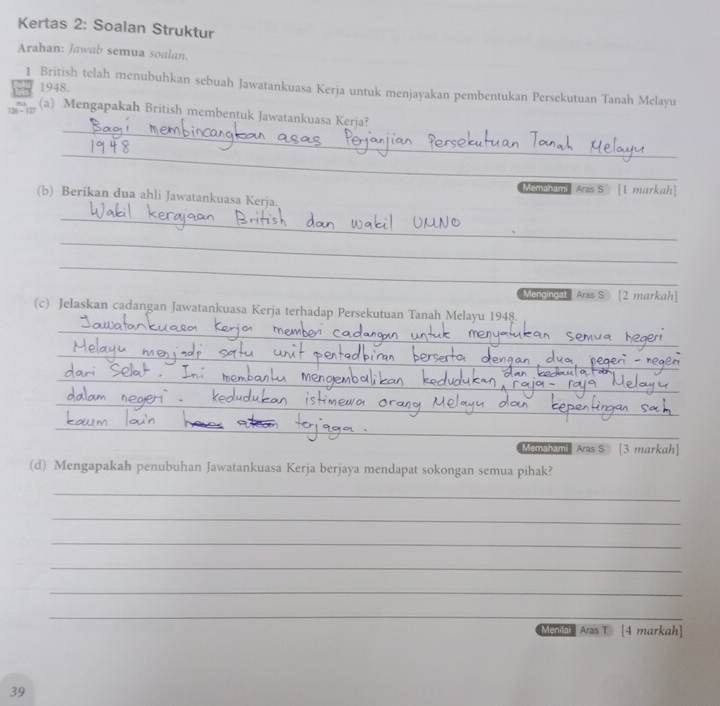 Kertas 2: Soalan Struktur
Arahan: Jawab semua soalan.
1 British telah menubuhkan sebuah Jawatankuasa Kerja untuk menjayakan pembentukan Persekutuan Tanah Melayu
1948.
(a) Mengapakah British membentuk Jawatankuasa Kerja?
Bagi membincangkan asas Perjanjian Persekutuan Tanah Melayu
1948
Memahami Aras S [1 markah]
(b) Berikan dua ahli Jawatankuasa Kerja.
Wakil kerajaan British dan wakil UMNO
Mengingat Aras S [2 markah]
(c) Jelaskan cadangan Jawatankuasa Kerja terhadap Persekutuan Tanah Melayu 1948.
Jawatankuasa Kerja memberi cadangan untuk menyatukan semua negeri
Melayu menjadi satu unit pentadbiran berserta dengan dua negeri-negeri
dari Selat. Ini membantu mengembalikan kedudukan dan kedaulatan raja-raja Melayu
dalam negeri. kedudukan istimewa orang Melayu dan kepentingan sah
kaum lain terjaga.
Memahami Aras S [3 markah]
(d) Mengapakah penubuhan Jawatankuasa Kerja berjaya mendapat sokongan semua pihak?
Menilai Aras T [4 markah]
39